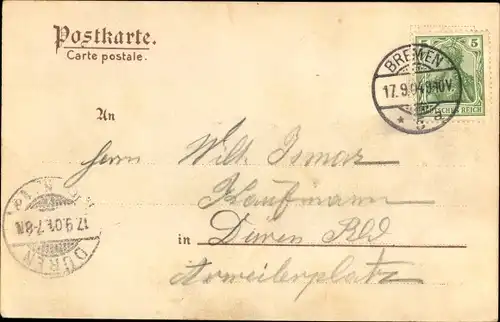 Postkarte.
Carte postale.
5 5
DEUTSCHES REICH
BREMEN
17.9.04 9-10V.
* 5 a
An
Herrn Wilh. Ismar
Kaufmann
in Düren Rld
Ahrweilerplatz
17.9.04.7-8N
DÜREN